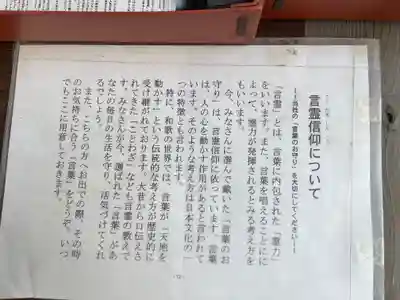 言霊信仰について
――当社の「言葉のお守り」を大切にしてください――
「言霊」とは、言葉に内包された「霊力」
をいいます。また、言葉を唱えることに
よって、霊力が発揮されるとみる考え方を
もいいます。
今、みなさんに選んで戴いた「言葉のお
守り」は、言霊信仰に依っています。言葉
は、人の心を動かす作用があると言われて
います。そのような考え方は日本文化の一
つの特徴とも言われます。
特に、和歌の世界では、言葉が「天地を
動かす」という伝統的な考え方が歴史的に
受け継がれております。大昔から口伝えさ
れてきた「ことわざ」なども言霊の教えで
す。みなさんが今、選ばれた「言葉」があ
なたの毎日の生活を守り、活気づけてくれ
るでしょう。
また、こちらの方へお出での際、その時
のお気持ちに合う「言葉」をどうぞ。いつ
でもここに用意しておきます。